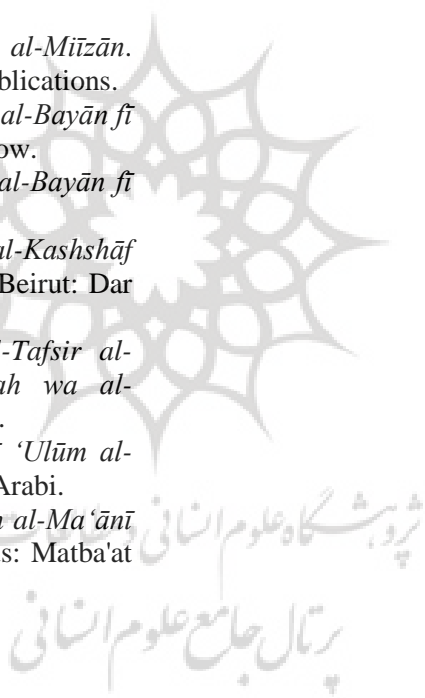 al-Miīzān.
blications.
al-Bayān fī
ow.
al-Bayān fī
al-Kashshāf
Beirut: Dar
l-Tafsir al-
ah wa al-
.
‘Ulūm al-
Arabi.
al-Ma‘ānī
s: Matba'at
پژوهشگاه علوم انسانی و مطالعات
پرتال جامع علوم انسانی